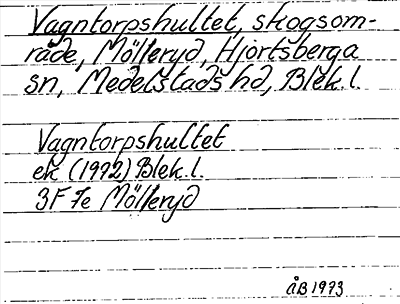 Vagntorpshultet, skogsom-
råde, Mölleryd, Hjortsberga
sn, Medelstads hd, Blek.l.
Vagntorpshultet
ek (1972) Blek.l.
3F 7e Mölleryd
ÅB 1973